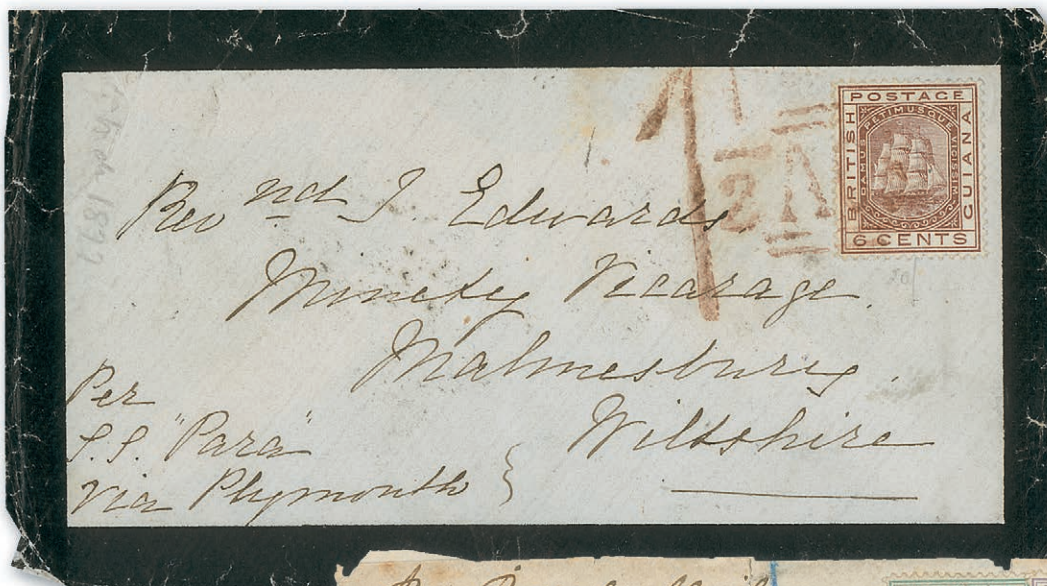 POSTAGE
BRITISH
GUIANA
DAMUS PETIMUSQUE VICISSIM
6 CENTS
1
2
A
Revnd J. Edwards
Minety Vicarage.
Malmesbury.
Wiltshire
Per
S.S. "Para"
Via Plymouth